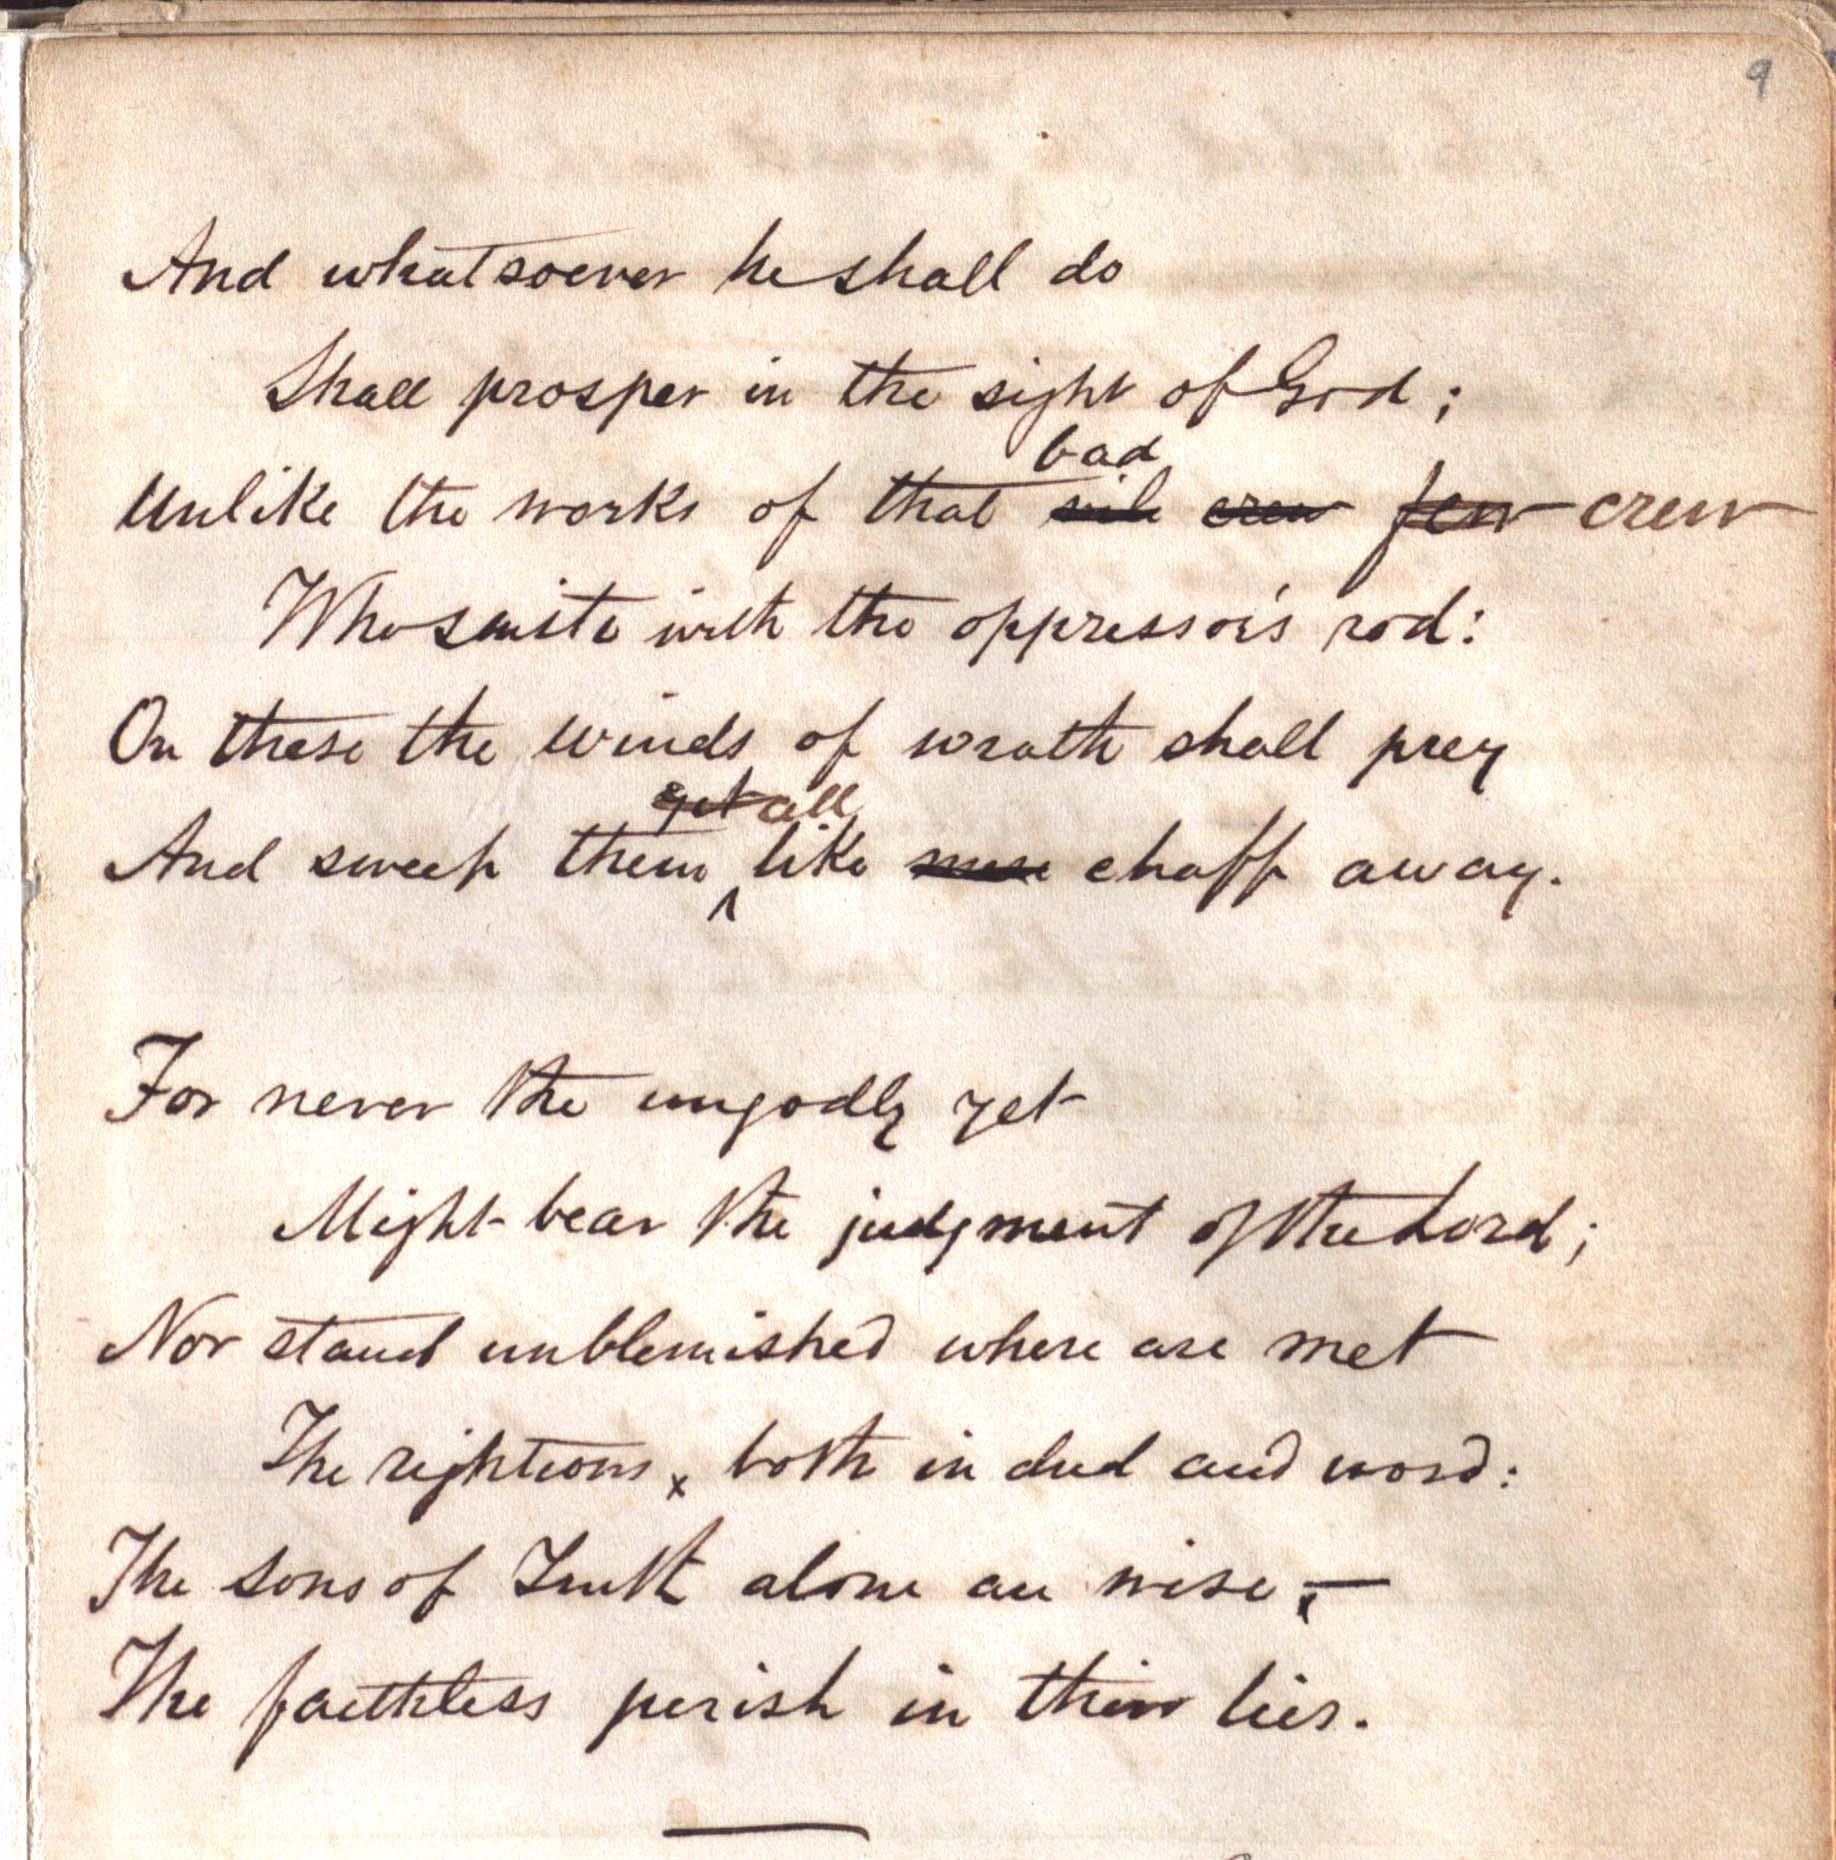 9
And whatsoever he shall do
Shall prosper in the sight of God;
bad
Unlike the works of that crew few crew
Who smite with the oppressor's rod:
On these the winds of wrath shall prey
yet all
And sweep them like chaff away.
For never the ungodly yet
Might bear the judgment of the Lord;
Nor stand unblemished where are met
The righteous, both in deed and word:
The sons of Truth alone are wise,—
The faithless perish in their lies.